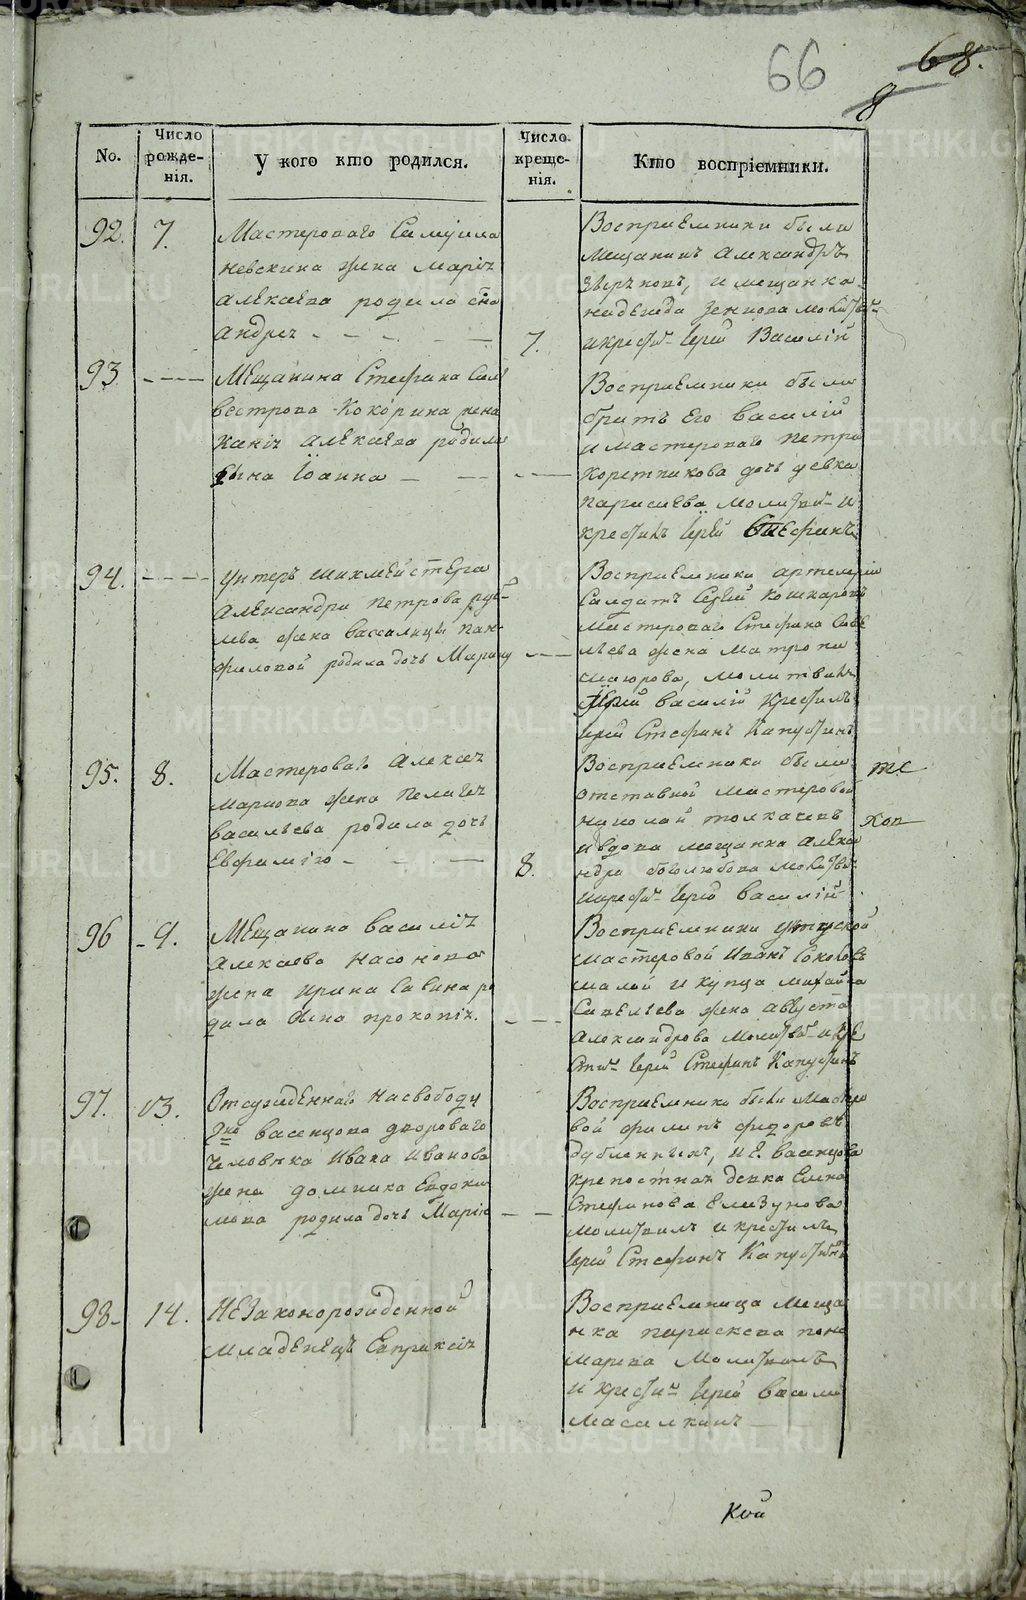 66
68.
8
No.
Число рожденія.
У кого кто родился.
Число крещенія.
Кто воспріемники.
92.
7.
Мастероваго Самуила
Невскина жена Марія
Алексѣева родила сна
Андрея
7.
Восприемники были
мещанинъ Александръ
и мещанка
надежда молитв
и крести Иерей Василій
93
Мещанина Стефана Сил
вестрова Кокорина жена
Алексѣева родила
сына Іоанна
Восприемники были
братъ его Василій
и мастероваго Петра
Коретникова дочь девка
молитв и
крестилъ Иерей Стефанъ
94.
унтеръ шихмейстера
Александра Петрова
жена Вассалиса Пан
филовой родила дочь Марину
Восприемники артилеріи
Салдатъ Сергей Кошкаровъ
мастероваго Стефана Саве
льева жена Матрона
молитвилъ
Иерей Василій Крестилъ
Иерей Стефанъ Капустинъ
95.
8.
Мастероваго Алексея
жена Пелагея
Васильева родила дочь
Евфимію
8.
Восприемники были
отставной мастеровой
николай толкачевъ
и вдова мещанка Алекса
ндра боголюбова молитви
и крести Иерей Василій
96
9.
Мещанина Василія
Алексѣева Насонова
жена Ирина Савина ро
дила сына прокопія.
Восприемники уткуской
мастеровой Иванъ Соколовъ
и купца михайла
Савельева жена августа
Александрова молитви и кре
сти Иерей Стефанъ Капустинъ
97.
13.
Отсужденнаго на свободу
васенцова двороваго
человека Ивана Иванова
жена домника Евдоки
мова родила дочь Марію
Восприемники были Мастеро
вой филипъ федоровъ
дубленныхъ, и г. васенцова
крепостная девка Елена
Стефанова Елизунова
молитвилъ и крестилъ
Иерей Стефанъ Капустинъ
98
14.
Незаконорожденной
младенецъ Евпраксія
Восприемница меща
нка параскева поно
марева молитвилъ
и крести Иерей Василій
Масалкинъ
METRIKI.GASO-URAL.RU